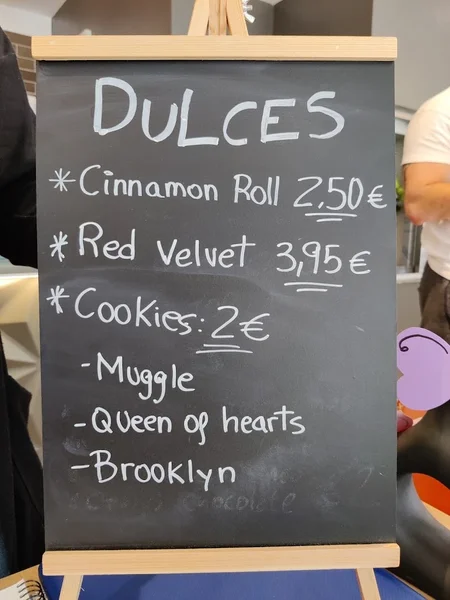 DULCES
* Cinnamon Roll 2,50€
* Red Velvet 3,95€
* Cookies: 2€
- Muggle
- Queen of hearts
- Brooklyn